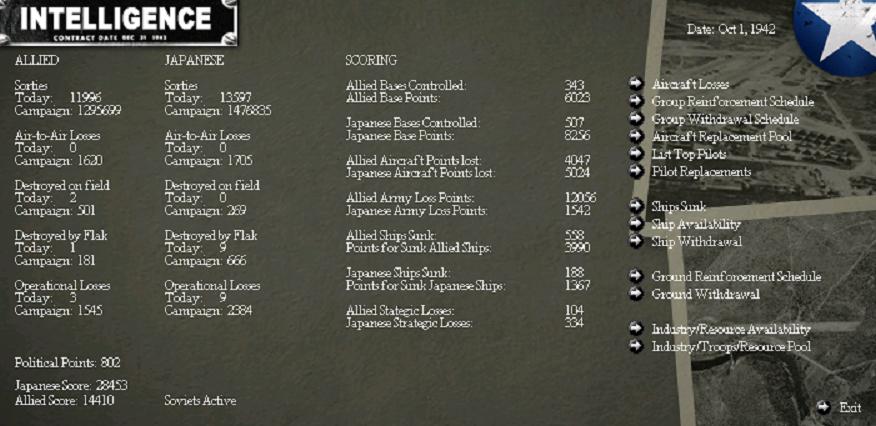 INTELLIGENCE
CONTRACT DATE DEC 31 1943
Date: Oct 1, 1942
ALLIED
Sorties
Today: 11996
Campaign: 1295699
Air-to-Air Losses
Today: 0
Campaign: 1620
Destroyed on field
Today: 2
Campaign: 501
Destroyed by Flak
Today: 1
Campaign: 181
Operational Losses
Today: 3
Campaign: 1545
JAPANESE
Sorties
Today: 13597
Campaign: 1476835
Air-to-Air Losses
Today: 0
Campaign: 1705
Destroyed on field
Today: 0
Campaign: 269
Destroyed by Flak
Today: 9
Campaign: 666
Operational Losses
Today: 9
Campaign: 2384
SCORING
Allied Bases Controlled: 343
Allied Base Points: 6023
Japanese Bases Controlled: 507
Japanese Base Points: 8256
Allied Aircraft Points lost: 4047
Japanese Aircraft Points lost: 5024
Allied Army Loss Points: 12056
Japanese Army Loss Points: 1542
Allied Ships Sunk: 558
Points for Sunk Allied Ships: 3990
Japanese Ships Sunk: 188
Points for Sunk Japanese Ships: 1367
Allied Stategic Losses: 104
Japanese Strategic Losses: 334
Aircraft Losses
Group Reinforcement Schedule
Group Withdrawal Schedule
Aircraft Replacement Pool
List Top Pilots
Pilot Replacements
Ships Sunk
Ship Availability
Ship Withdrawal
Ground Reinforcement Schedule
Ground Withdrawal
Industry/Resource Availability
Industry/Troops/Resource Pool
Political Points: 802
Japanese Score: 28453
Allied Score: 14410
Soviets Active
Exit